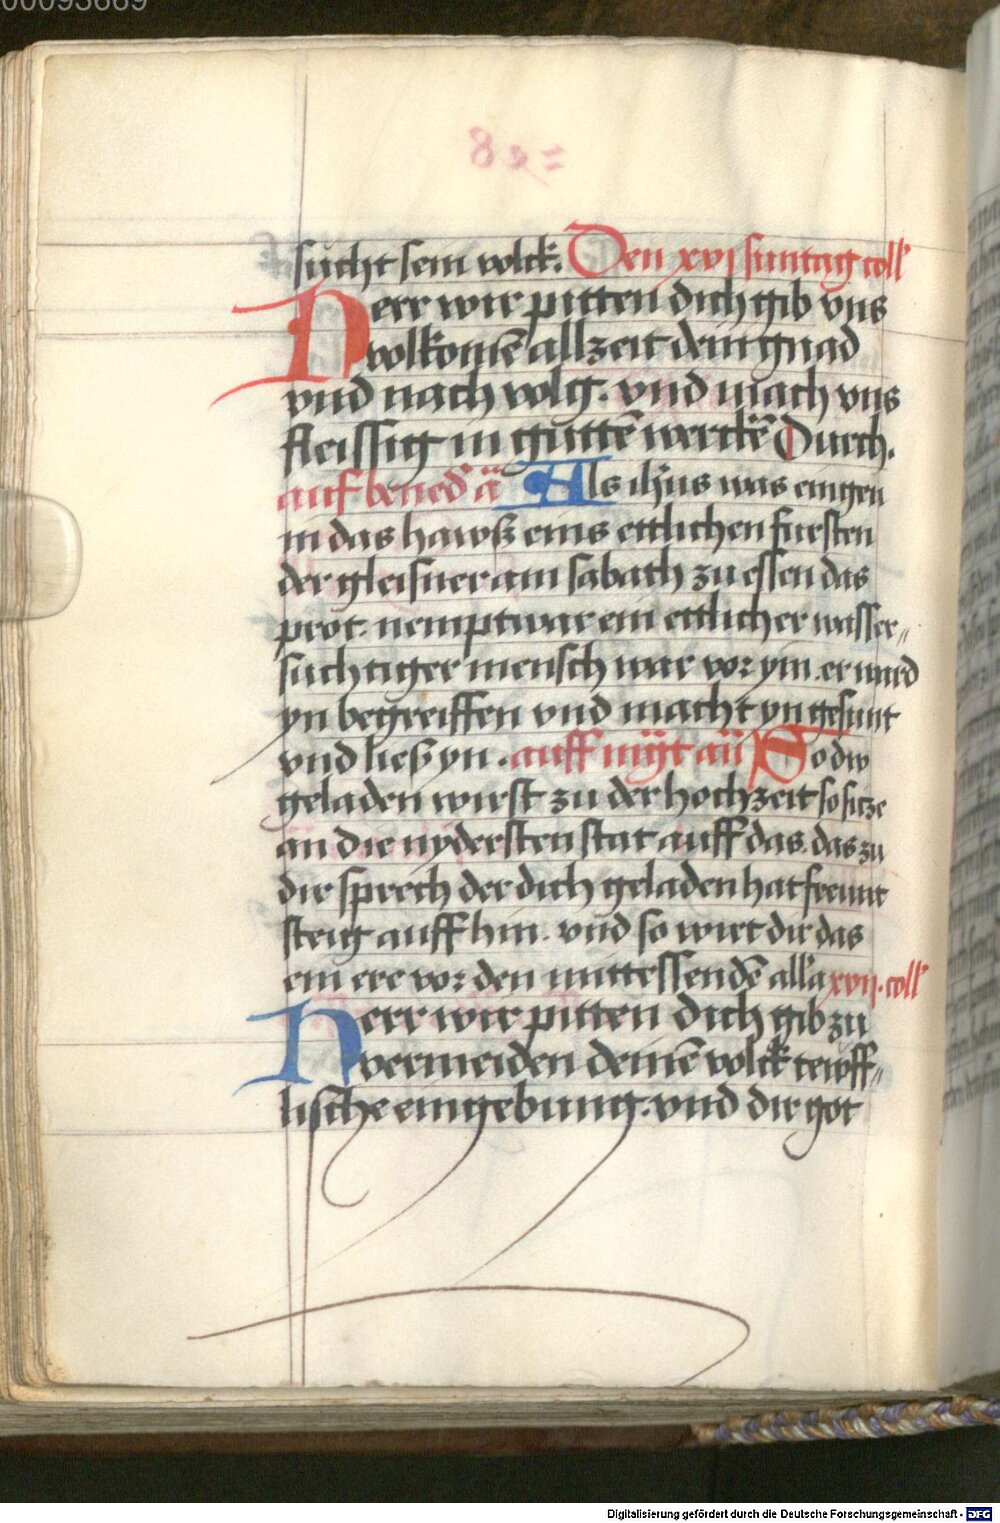 00093669
sucht sein volck. Den xvi suntag coll'
Herr wir pitten dich gib vns
volkomē allzeit dein gnad
vnd nach volg. vnd mach vns
fleissig in guttē werckē Durch.
auf bened' ā Als ihūs was eingen
in das hawß eins ettlichen fursten
der gleisner am sabath zu essen das
prot. nempt war ein ettlicher wasser„
suchtiger mensch war vor ym. er ward
yn begreiffen vnd macht yn gesunt
vnd ließ yn. auff mgt an̄ So dw
geladen wirst zu der hochzeit so sitze
an die nydersten stat auff das. das zu
dir sprech der dich geladen hat freunt
steig auff hin. vnd so wirt dir das
ein ere vor den mittessendē alla xvij. coll'
Herr wir pitten dich gib zu
vermeiden deinē volck tewff„
lische eingebung. vnd dir got
Digitalisierung gefördert durch die Deutsche Forschungsgemeinschaft - DFG